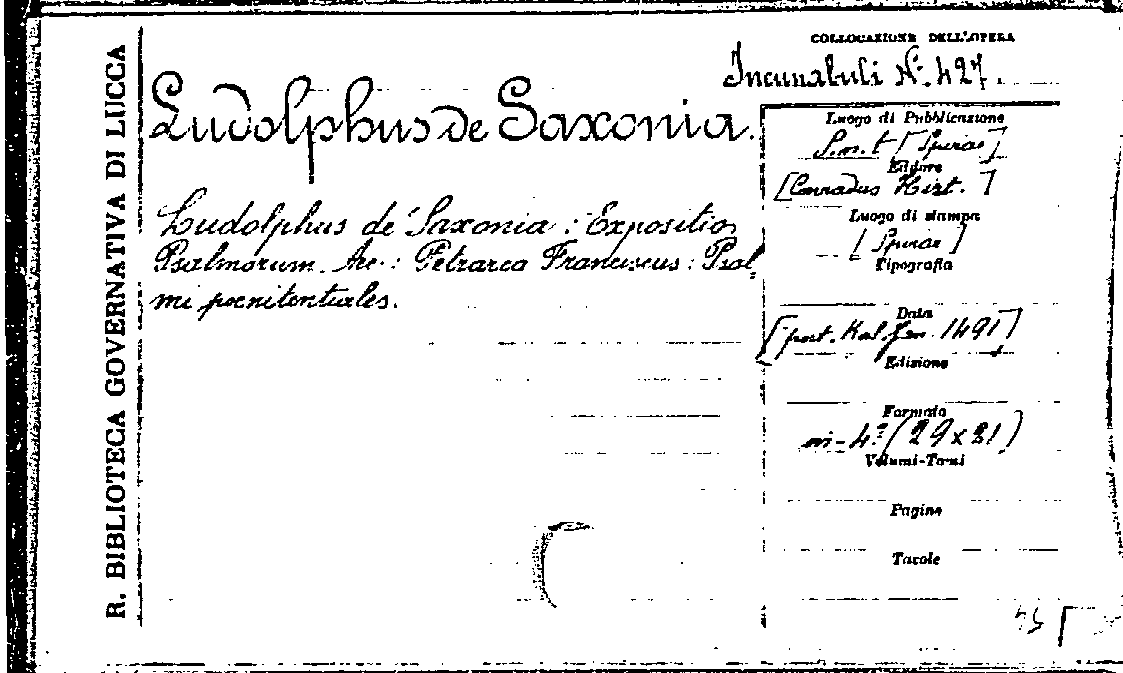 R. BIBLIOTECA GOVERNATIVA DI LUCCA
COLLOCAZIONE DELL'OPERA
Incunabuli N. 427.
Ludolphus de Saxonia.
Ludolphus de Saxonia: Expositio
Psalmorum. Acc.: Petrarca Franciscus: Psal-
mi poenitentiales.
Luogo di Pubblicazione
S.n.t [Spirae]
Editore
[Conradus Hist.]
Luogo di stampa
[Spirae]
Tipografia
Data
[post. Kal. Jan. 1491]
Edizione
Formato
in-4° (29x21)
Volumi-Tomi
Pagine
Tavole